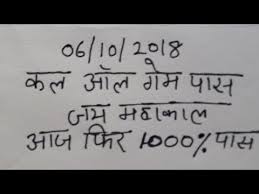 06/10/2018
कल ऑल गेम पास
जय महाकाल
आज फिर 1000% पास